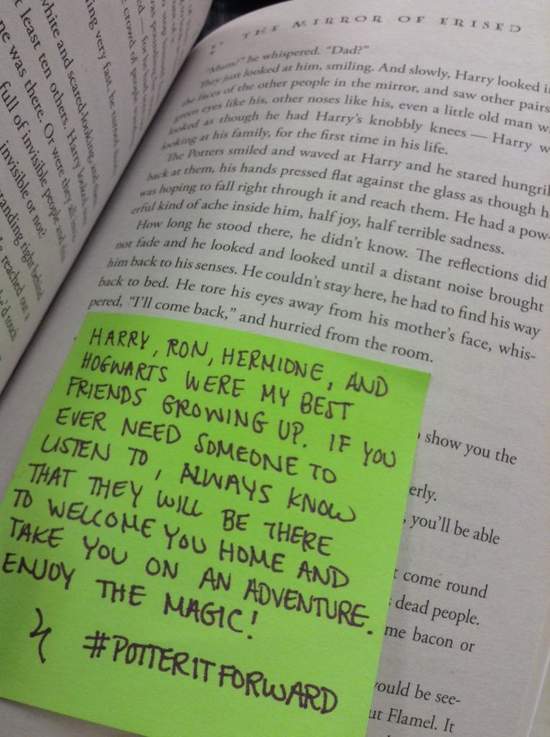 THE MIRROR OF ERISED
he whispered. "Dad?"
They just looked at him, smiling. And slowly, Harry looked
the faces of the other people in the mirror, and saw other pairs
green eyes like his, other noses like his, even a little old man
looked as though he had Harry's knobbly knees — Harry
looking at his family, for the first time in his life.
The Potters smiled and waved at Harry and he stared
back at them, his hands pressed flat against the glass as though
was hoping to fall right through it and reach them. He had a pow-
erful kind of ache inside him, half joy, half terrible sadness.
How long he stood there, he didn't know. The reflections did
not fade and he looked and looked until a distant noise brought
him back to his senses. He couldn't stay here, he had to find his way
back to bed. He tore his eyes away from his mother's face, whis-
pered, "I'll come back," and hurried from the room.
show you the
erly.
you'll be able
come round
dead people.
me bacon or
ould be see-
ut Flamel. It
HARRY, RON, HERMIONE, AND
HOGWARTS WERE MY BEST
FRIENDS GROWING UP. IF YOU
EVER NEED SOMEONE TO
LISTEN TO, ALWAYS KNOW
THAT THEY WILL BE THERE
TO WELCOME YOU HOME AND
TAKE YOU ON AN ADVENTURE.
ENJOY THE MAGIC!
#POTTERITFORWARD